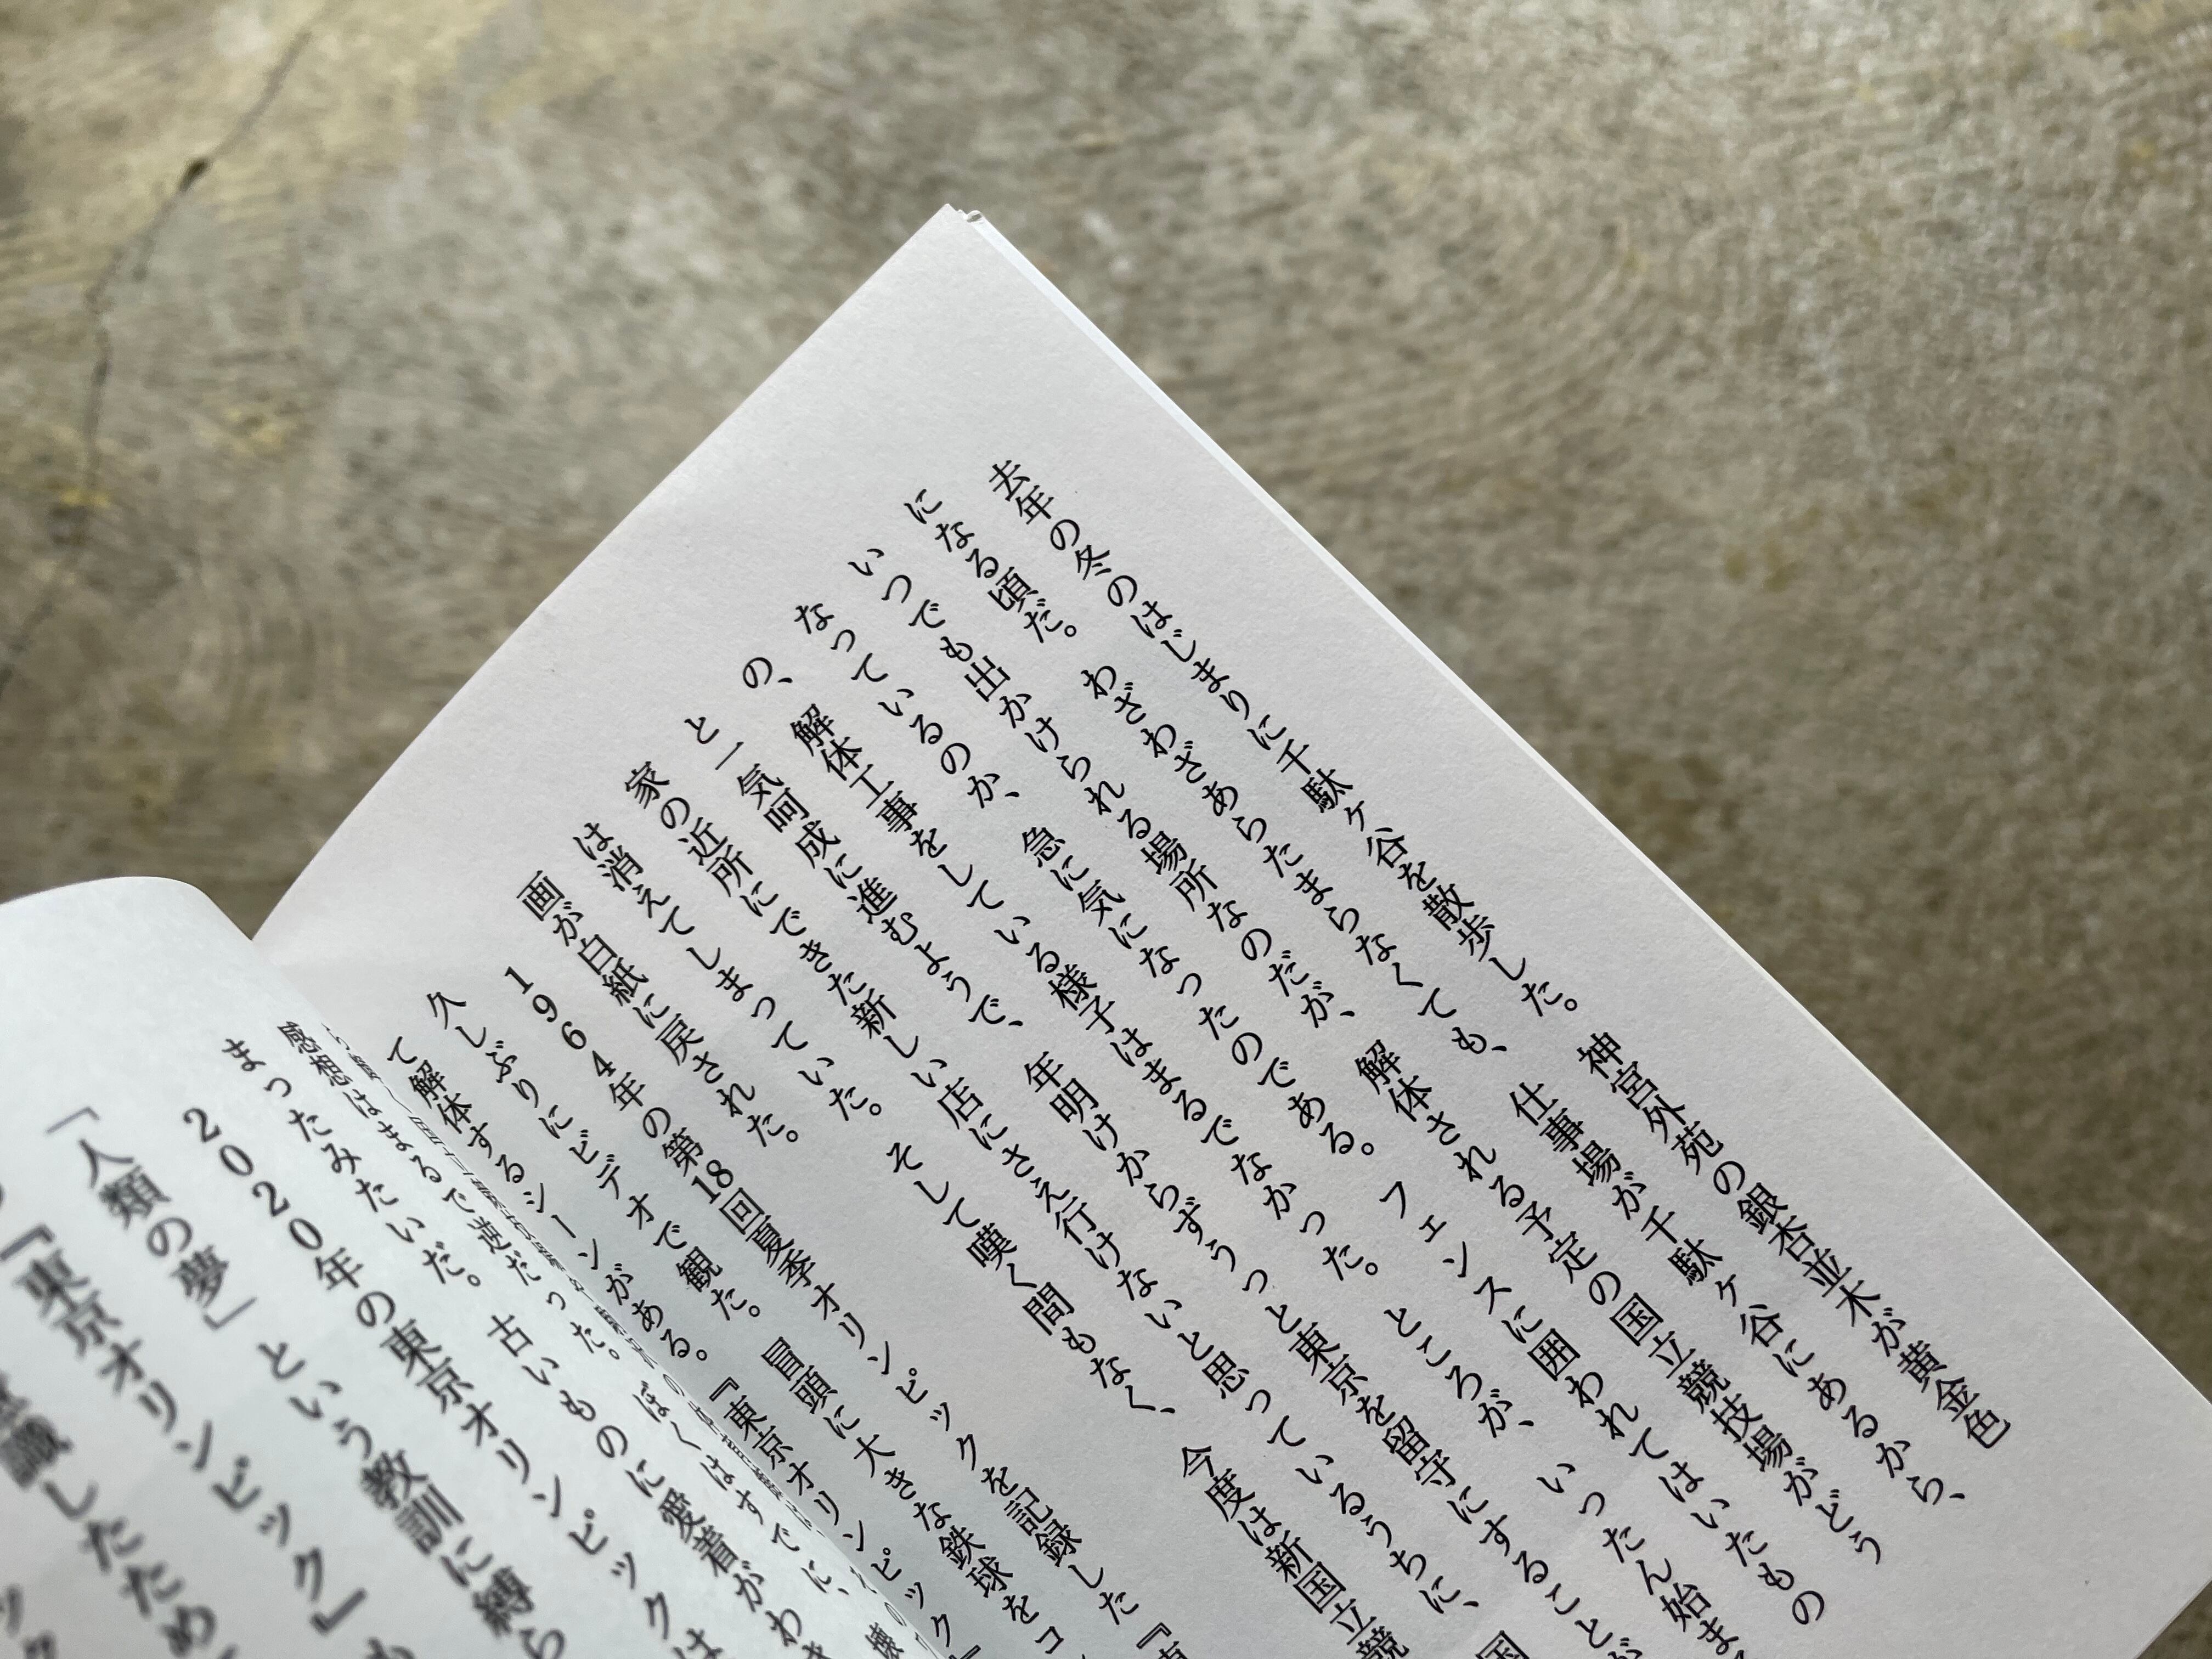 去年の冬のはじまりに千駄ヶ谷を散歩した。神宮外苑の銀杏並木が黄金色
になる頃だ。わざわざあらたまらなくても、仕事場が千駄ヶ谷にあるから、
いつでも出かけられる場所なのだが、解体される予定の国立競技場がどう
なっているのか、急に気になったのである。フェンスに囲われてはいたもの
の、解体工事をしている様子はまるでなかった。ところが、いったん始ま
と一気呵成に進むようで、年明けからずうっと東京を留守にすることが
家の近所にできた新しい店にさえ行けないと思っているうちに、国
は消えてしまっていた。そして嘆く間もなく、今度は新国立競
画が白紙に戻された。
1964年の第18回夏季オリンピックを記録した『東
久しぶりにビデオで観た。冒頭に大きな鉄球をコ
て解体するシーンがある。『東京オリンピック』
感想はまるで逆だった。ぼくはすでに、壊
まったみたいだ。古いものに愛着がわき
2020年の東京オリンピックは
「人類の夢」という教訓に縛ら
『東京オリンピック』も
識したため